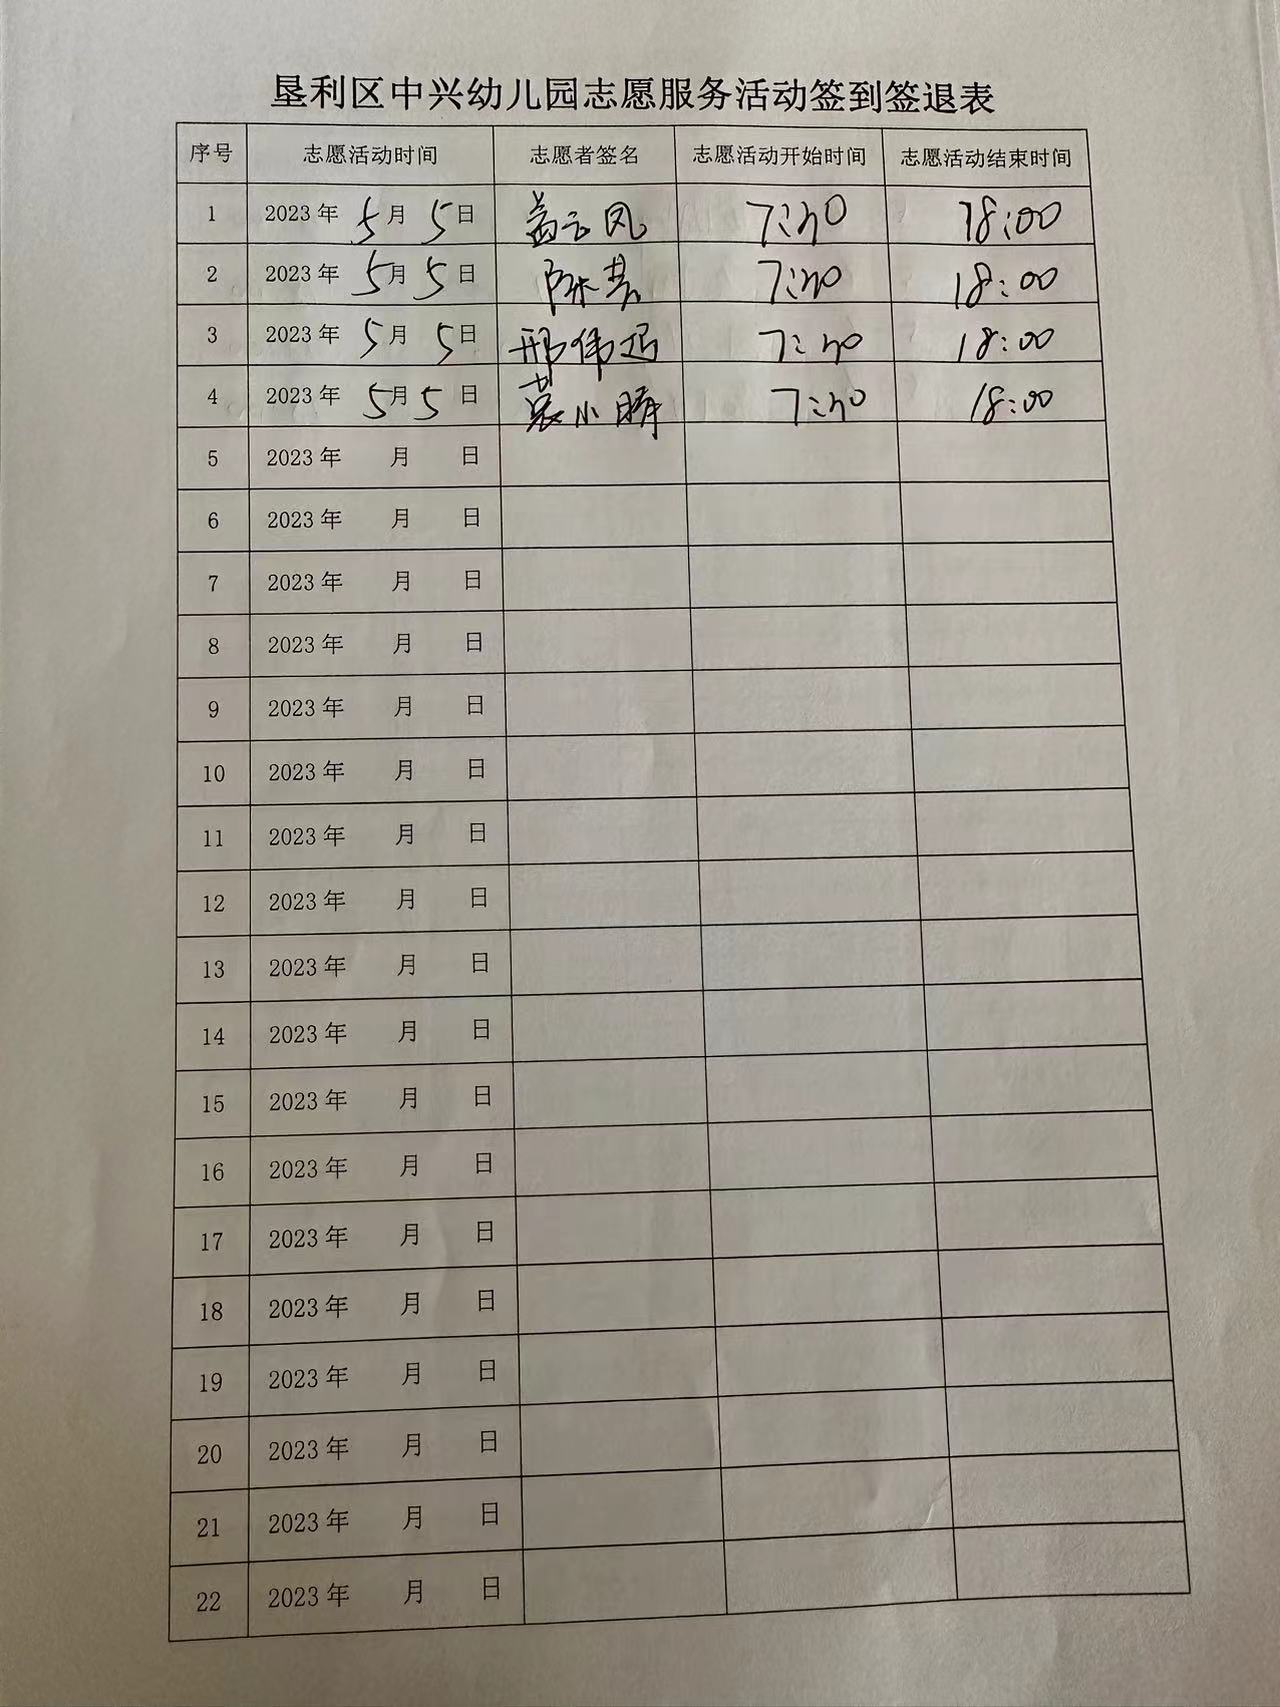 垦利区中兴幼儿园志愿服务活动签到签退表
序号 志愿活动时间 志愿者签名 志愿活动开始时间 志愿活动结束时间
1 2023年 5月 5日 盖云凤 7:40 18:00
2 2023年 5月 5日 陈 7:40 18:00
3 2023年 5月 5日 邢伟 7:40 18:00
4 2023年 5月 5日 小晴 7:40 18:00
5 2023年 月 日
6 2023年 月 日
7 2023年 月 日
8 2023年 月 日
9 2023年 月 日
10 2023年 月 日
11 2023年 月 日
12 2023年 月 日
13 2023年 月 日
14 2023年 月 日
15 2023年 月 日
16 2023年 月 日
17 2023年 月 日
18 2023年 月 日
19 2023年 月 日
20 2023年 月 日
21 2023年 月 日
22 2023年 月 日